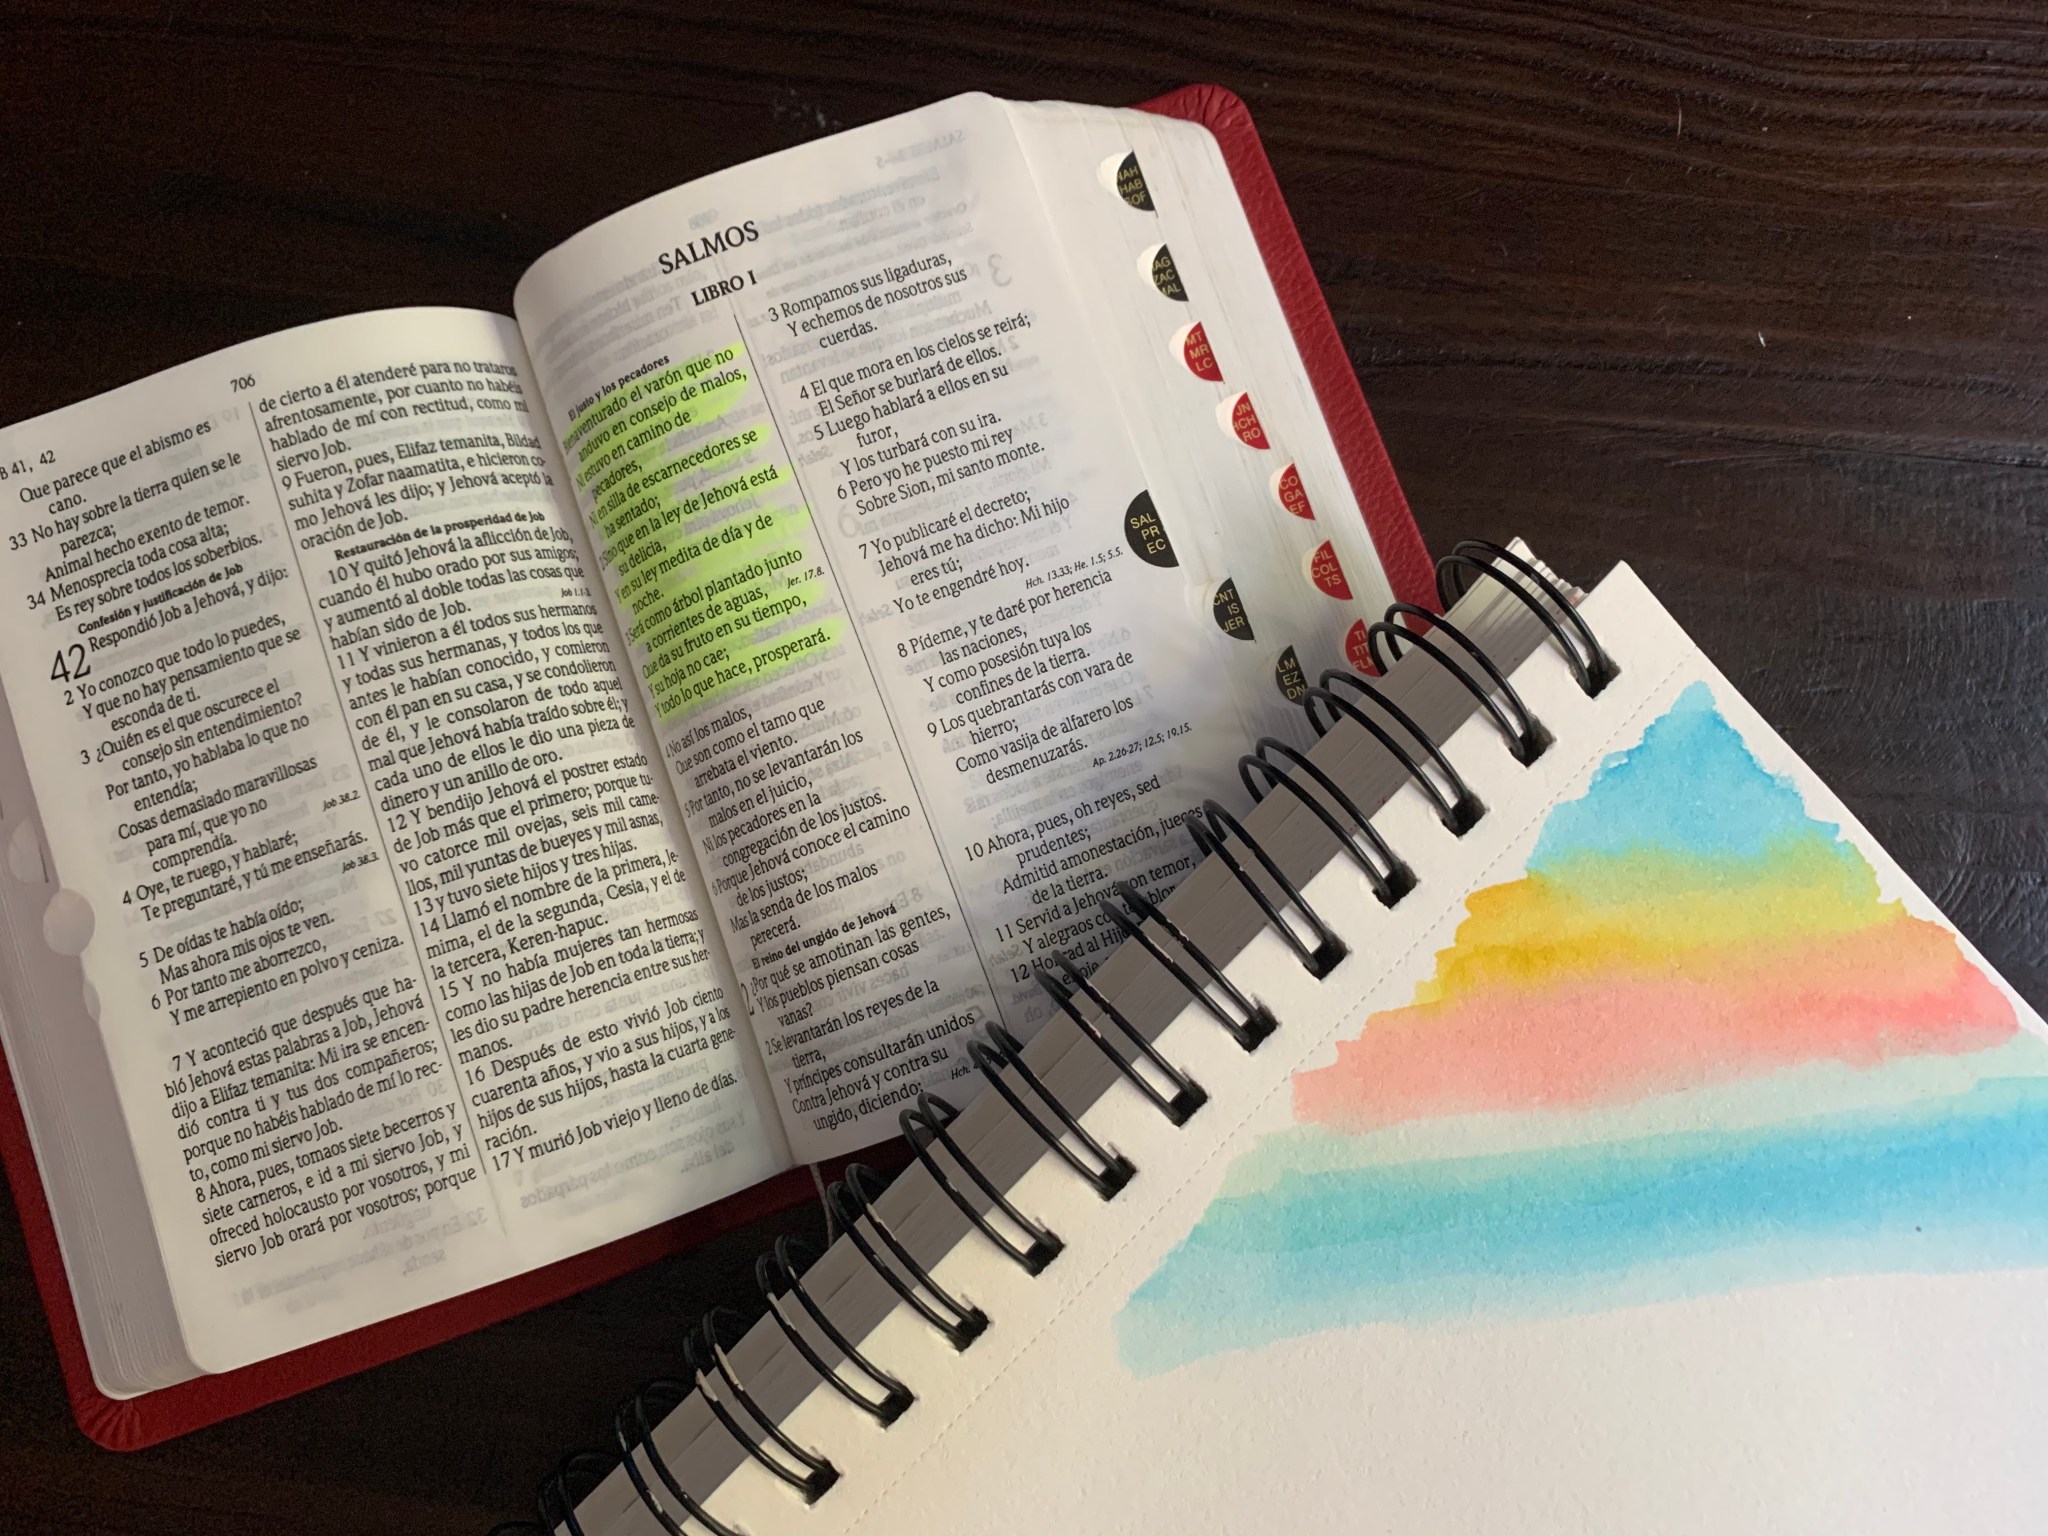 B 41, 42
706
Que parece que el abismo es
cano.
33 No hay sobre la tierra quien se le
parezca;
Animal hecho exento de temor.
34 Menosprecia toda cosa alta;
Es rey sobre todos los soberbios.
Confesión y justificación de Job
42 Respondió Job a Jehová, y dijo:
2 Yo conozco que todo lo puedes,
Y que no hay pensamiento que se
esconda de ti.
3 ¿Quién es el que oscurece el
consejo sin entendimiento?
Por tanto, yo hablaba lo que no
entendía;
Cosas demasiado maravillosas
para mí, que yo no
comprendía.
Job 38.2.
4 Oye, te ruego, y hablaré;
Te preguntaré, y tú me enseñarás.
Job 38.3.
5 De oídas te había oído;
Mas ahora mis ojos te ven.
6 Por tanto me aborrezco,
Y me arrepiento en polvo y ceniza.
7 Y aconteció que después que ha-
bló Jehová estas palabras a Job, Jehová
dijo a Elifaz temanita: Mi ira se encen-
dió contra ti y tus dos compañeros;
porque no habéis hablado de mí lo rec-
to, como mi siervo Job.
8 Ahora, pues, tomaos siete becerros y
siete carneros, e id a mi siervo Job, y
ofreced holocausto por vosotros, y mi
siervo Job orará por vosotros; porque
de cierto a él atenderé para no trataros
afrentosamente, por cuanto no habéis
hablado de mí con rectitud, como mi
siervo Job.
9 Fueron, pues, Elifaz temanita, Bildad
suhita y Zofar naamatita, e hicieron co-
mo Jehová les dijo; y Jehová aceptó la
oración de Job.
Restauración de la prosperidad de Job
10 Y quitó Jehová la aflicción de Job,
cuando él hubo orado por sus amigos;
y aumentó al doble todas las cosas que
habían sido de Job.
Job 1.1-3.
11 Y vinieron a él todos sus hermanos
y todas sus hermanas, y todos los que
antes le habían conocido, y comieron
con él pan en su casa, y se condolieron
de él, y le consolaron de todo aquel
mal que Jehová había traído sobre él; y
cada uno de ellos le dio una pieza de
dinero y un anillo de oro.
12 Y bendijo Jehová el postrer estado
de Job más que el primero; porque tu-
vo catorce mil ovejas, seis mil came-
llos, mil yuntas de bueyes y mil asnas,
13 y tuvo siete hijos y tres hijas.
14 Llamó el nombre de la primera, Je-
mima, el de la segunda, Cesia, y el de
la tercera, Keren-hapuc.
15 Y no había mujeres tan hermosas
como las hijas de Job en toda la tierra; y
les dio su padre herencia entre sus her-
manos.
16 Después de esto vivió Job ciento
cuarenta años, y vio a sus hijos, y a los
hijos de sus hijos, hasta la cuarta gene-
ración.
17 Y murió Job viejo y lleno de días.
SALMOS
LIBRO I
El justo y los pecadores
Bienaventurado el varón que no
anduvo en consejo de malos,
Ni estuvo en camino de
pecadores,
Ni en silla de escarnecedores se
ha sentado;
2 Sino que en la ley de Jehová está
su delicia,
Y en su ley medita de día y de
noche.
3 Será como árbol plantado junto
a corrientes de aguas,
Jer. 17.8.
Que da su fruto en su tiempo,
Y su hoja no cae;
Y todo lo que hace, prosperará.
4 No así los malos,
Que son como el tamo que
arrebata el viento.
5 Por tanto, no se levantarán los
malos en el juicio,
Ni los pecadores en la
congregación de los justos.
6 Porque Jehová conoce el camino
de los justos;
Mas la senda de los malos
perecerá.
El reino del ungido de Jehová
2 ¿Por qué se amotinan las gentes,
Y los pueblos piensan cosas
vanas?
2 Se levantarán los reyes de la
tierra,
Y príncipes consultarán unidos
Contra Jehová y contra su
ungido, diciendo:
Hch.
3 Rompamos sus ligaduras,
Y echemos de nosotros sus
cuerdas.
4 El que mora en los cielos se reirá;
El Señor se burlará de ellos.
5 Luego hablará a ellos en su
furor,
Y los turbará con su ira.
6 Pero yo he puesto mi rey
Sobre Sion, mi santo monte.
7 Yo publicaré el decreto;
Jehová me ha dicho: Mi hijo
eres tú;
Yo te engendré hoy.
Hch. 13.33; He. 1.5; 5.5.
8 Pídeme, y te daré por herencia
las naciones,
Y como posesión tuya los
confines de la tierra.
9 Los quebrantarás con vara de
hierro;
Como vasija de alfarero los
desmenuzarás.
Ap. 2.26-27; 12.5; 19.15.
10 Ahora, pues, oh reyes, sed
prudentes;
Admitid amonestación, jueces
de la tierra.
11 Servid a Jehová con temor,
Y alegraos con
12 Honrad al Hijo
HAB
SOF
ZAC
MAL
MT
MR
LC
JN
HCH
RO
CO
GA
EF
SAL
PR
EC
FIL
COL
TS
CNT
IS
JER
TI
TIT
FLM
LM
EZ
DN